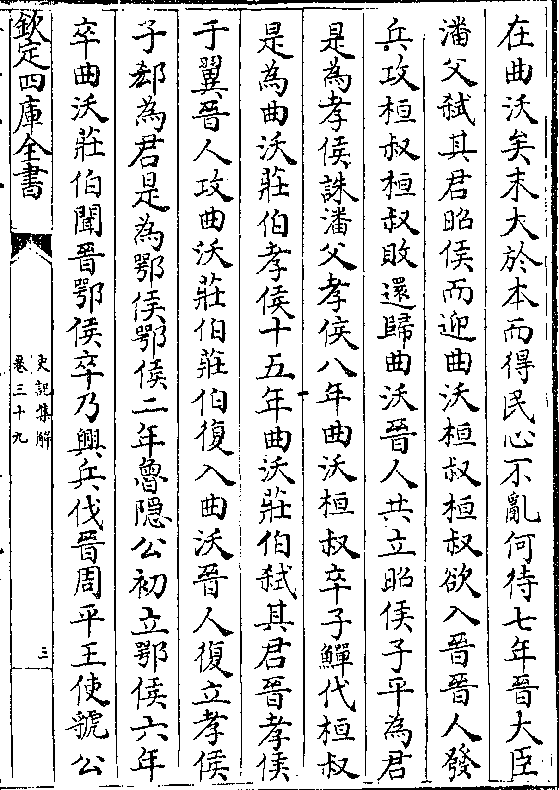 在曲沃矣末大於本而得民心不亂何待七年晉大臣
潘父弑其君昭侯而迎曲沃桓叔桓叔欲入晉晉人發
兵攻桓叔桓叔敗還歸曲沃晉人共立昭侯子平為君
是為孝侯誅潘父孝侯八年曲沃桓叔卒子鱓代桓叔
是為曲沃莊伯孝侯十五年曲沃莊伯弑其君晉孝侯
于翼晉人攻曲沃莊伯莊伯復入曲沃晉人復立孝侯
子郄為君是為鄂侯鄂侯二年魯隠公初立鄂侯六年
卒曲沃莊伯聞晉鄂侯卒乃興兵伐晉周平王使虢公
欽定四庫全書
史記集解
卷三十九
三